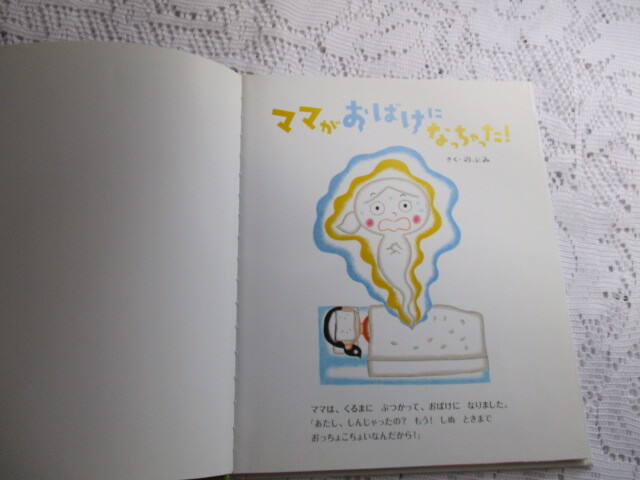 ママがおばけになっちゃった!
さく・のぶみ
ママは、くるまに ぶつかって、おばけに なりました。
「あたし、しんじゃったの? もう! しぬ ときまで
おっちょこちょいなんだから!」